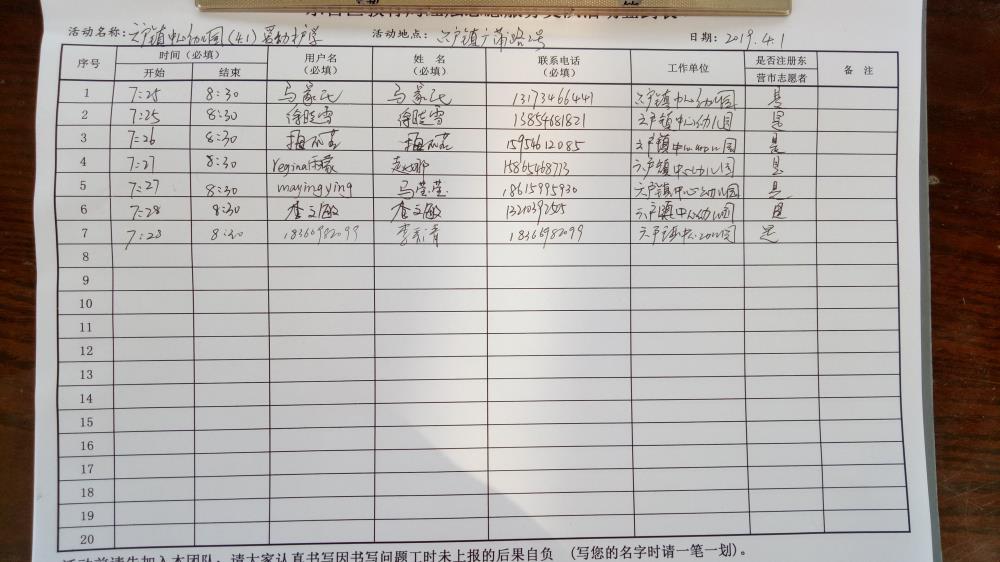 活动名称：六户镇中心幼儿园(4.1)爱幼护学 活动地点：六户镇广蒲路2号 日期：2019.4.1
序号 时间（必填） 用户名（必填） 姓名（必填） 联系电话（必填） 工作单位 是否注册东营市志愿者 备注
开始 结束
1 7:25 8:30 马 马 13173466441 六户镇中心幼儿园 是
2 7:25 8:30 徐晓雪 徐晓雪 13854681821 六户镇中心幼儿园 是
3 7:26 8:30 15954612085 六户镇中心幼儿园 是
4 7:27 8:30 regina 赵娜 15865468713 六户镇中心幼儿园 是
5 7:27 8:30 mayingying 马莹莹 18615995930 六户镇中心幼儿园 是
6 7:28 8:30 李文敏 李文敏 13210392525 六户镇中心幼儿园 是
7 7:28 8:30 18366982099 李 清 18366982099 六户镇中心幼儿园 是
8
9
10
11
12
13
14
15
16
17
18
19
20
活动前请先加入本团队；请大家认真书写因书写问题工时未上报的后果自负 （写您的名字时请一笔一划）。